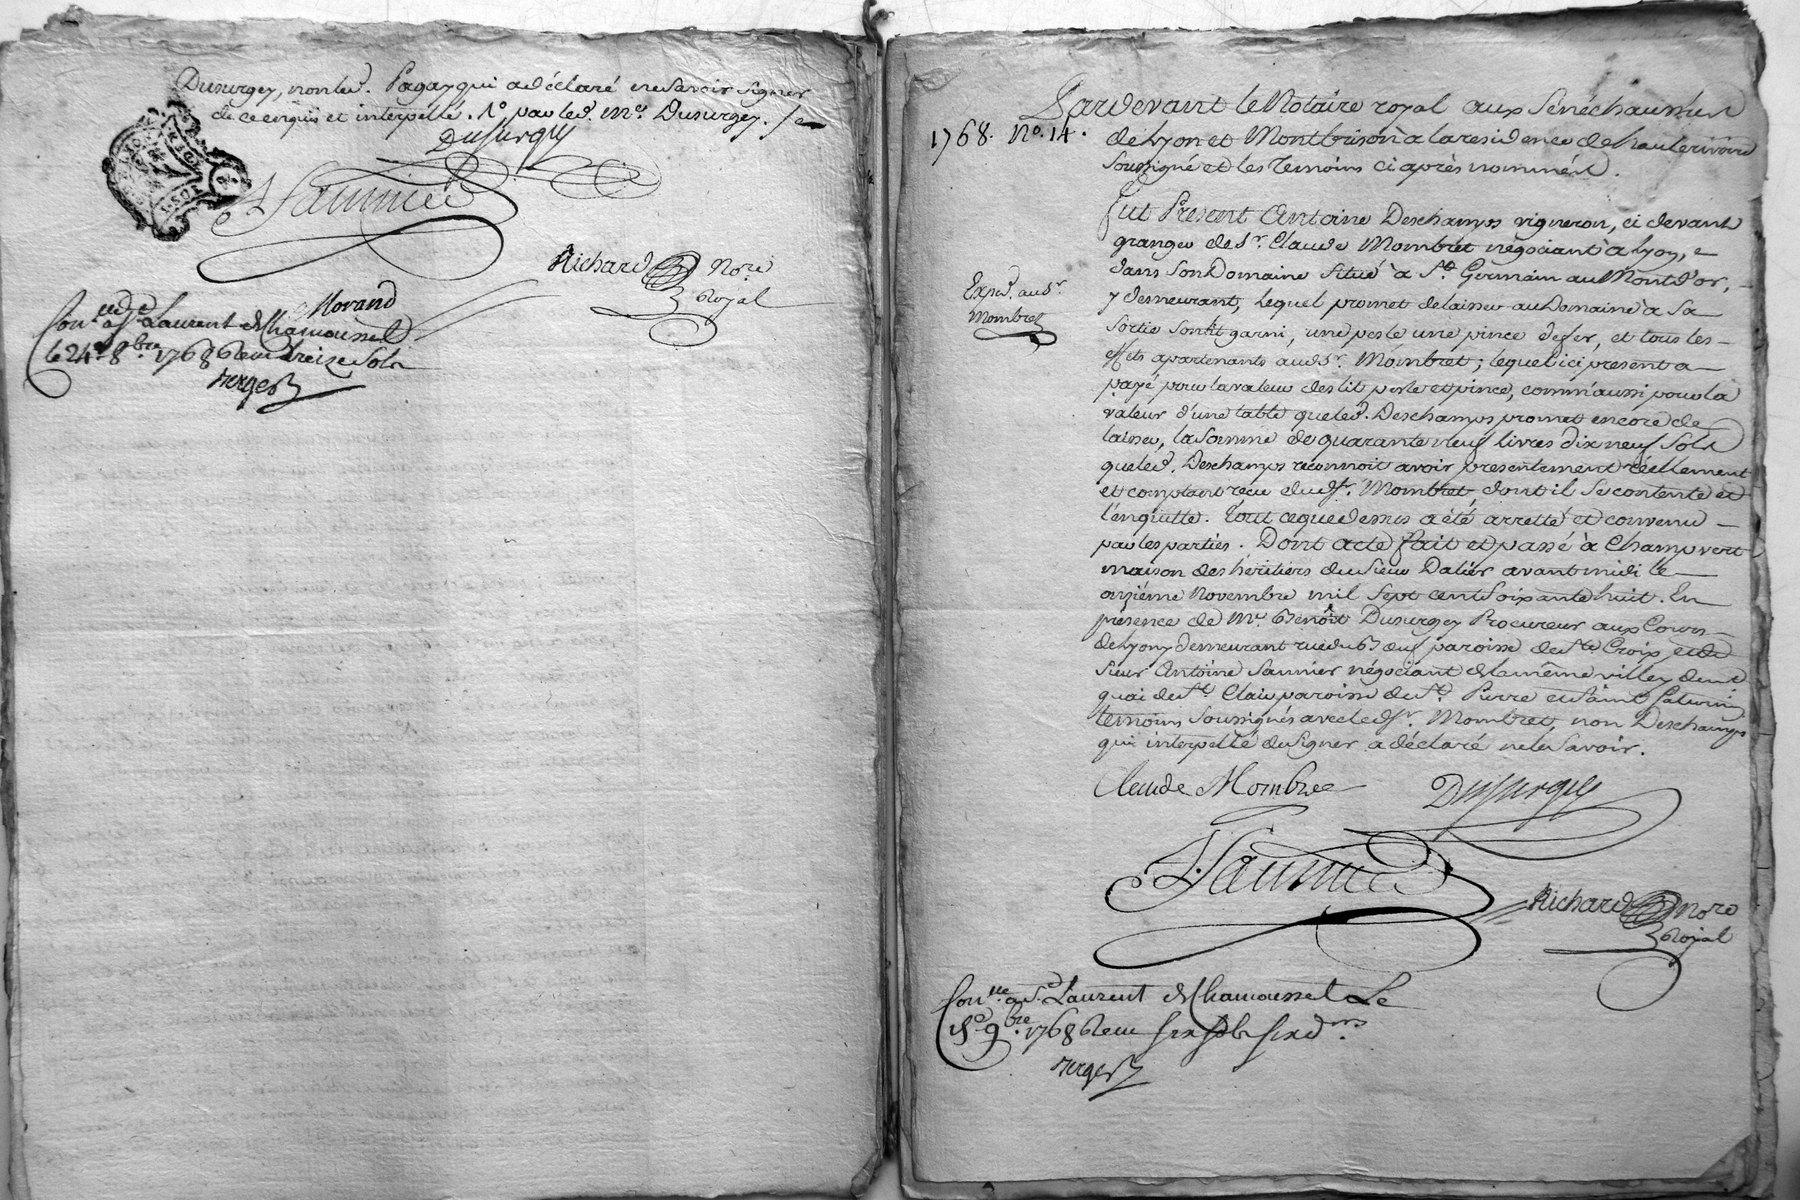 Dusurgey, non led. Pagay qui a déclaré ne savoir signer
de ce enquis et interpellé. par led. Me. Dusurgey.
Dusurgey
A Saunier
Richard Nore
Royal
Morand
Conllé à St. Laurent de Chamousset
le 24e 8bre 1768 Reçu treize Sols
Pardevant le Notaire royal aux Sénéchaussées
1768. No. 14.
de Lyon et Montbrison à la residence de hauterivoire
Soussigné et les Temoins ci après nommés.
fut Présent Antoine Deschamps vigneron, ci devant
granger de Sr. Claude Mombret négociant à Lyon,
dans son Domaine situé à St. Germain au Mont d'or,
y demeurant, lequel promet de laisser au Domaine à sa
Expéd. au Sr.
Mombret
sortie son lit garni, une pesle une pince de fer, et tous les
effets apartenants aud. Sr. Mombret; lequel ici present a
payé pour la valeur des lit pesle et pince, comm'aussi pour la
valeur d'une table que led. Deschamps promet encore de
laisser, la somme de quarante neuf livres dix neuf sols
que led. Deschamps reconnoit avoir presentement réellement
et comptant reçu dud. Sr. Mombret, dont il se contente et
l'en quitte. Tout ce que dessus a été arretté et convenu
par les parties. Dont acte fait et passé à Champvert
maison des héritiers du sieur Dalier avant midi le
onzième Novembre mil sept cent soixante huit. En
présence de Me. Benoît Dusurgey Procureur aux Cours
de Lyon y demeurant rue du Bœuf paroisse de Ste Croix et de
sieur Antoine Saunier négociant de la même ville y demt
quai de St. Clair paroisse de St. Pierre et Saint Saturnin
temoins soussignés avec led. Sr. Mombret, non Deschamps
qui interpellé de signer a déclaré ne le savoir.
Claude Mombret
Dusurgey
A. Saunier
Richard Nore
Royal
Conllé à St. Laurent de Chamousset Le
15e 9bre. 1768 Reçu six sols six drs.